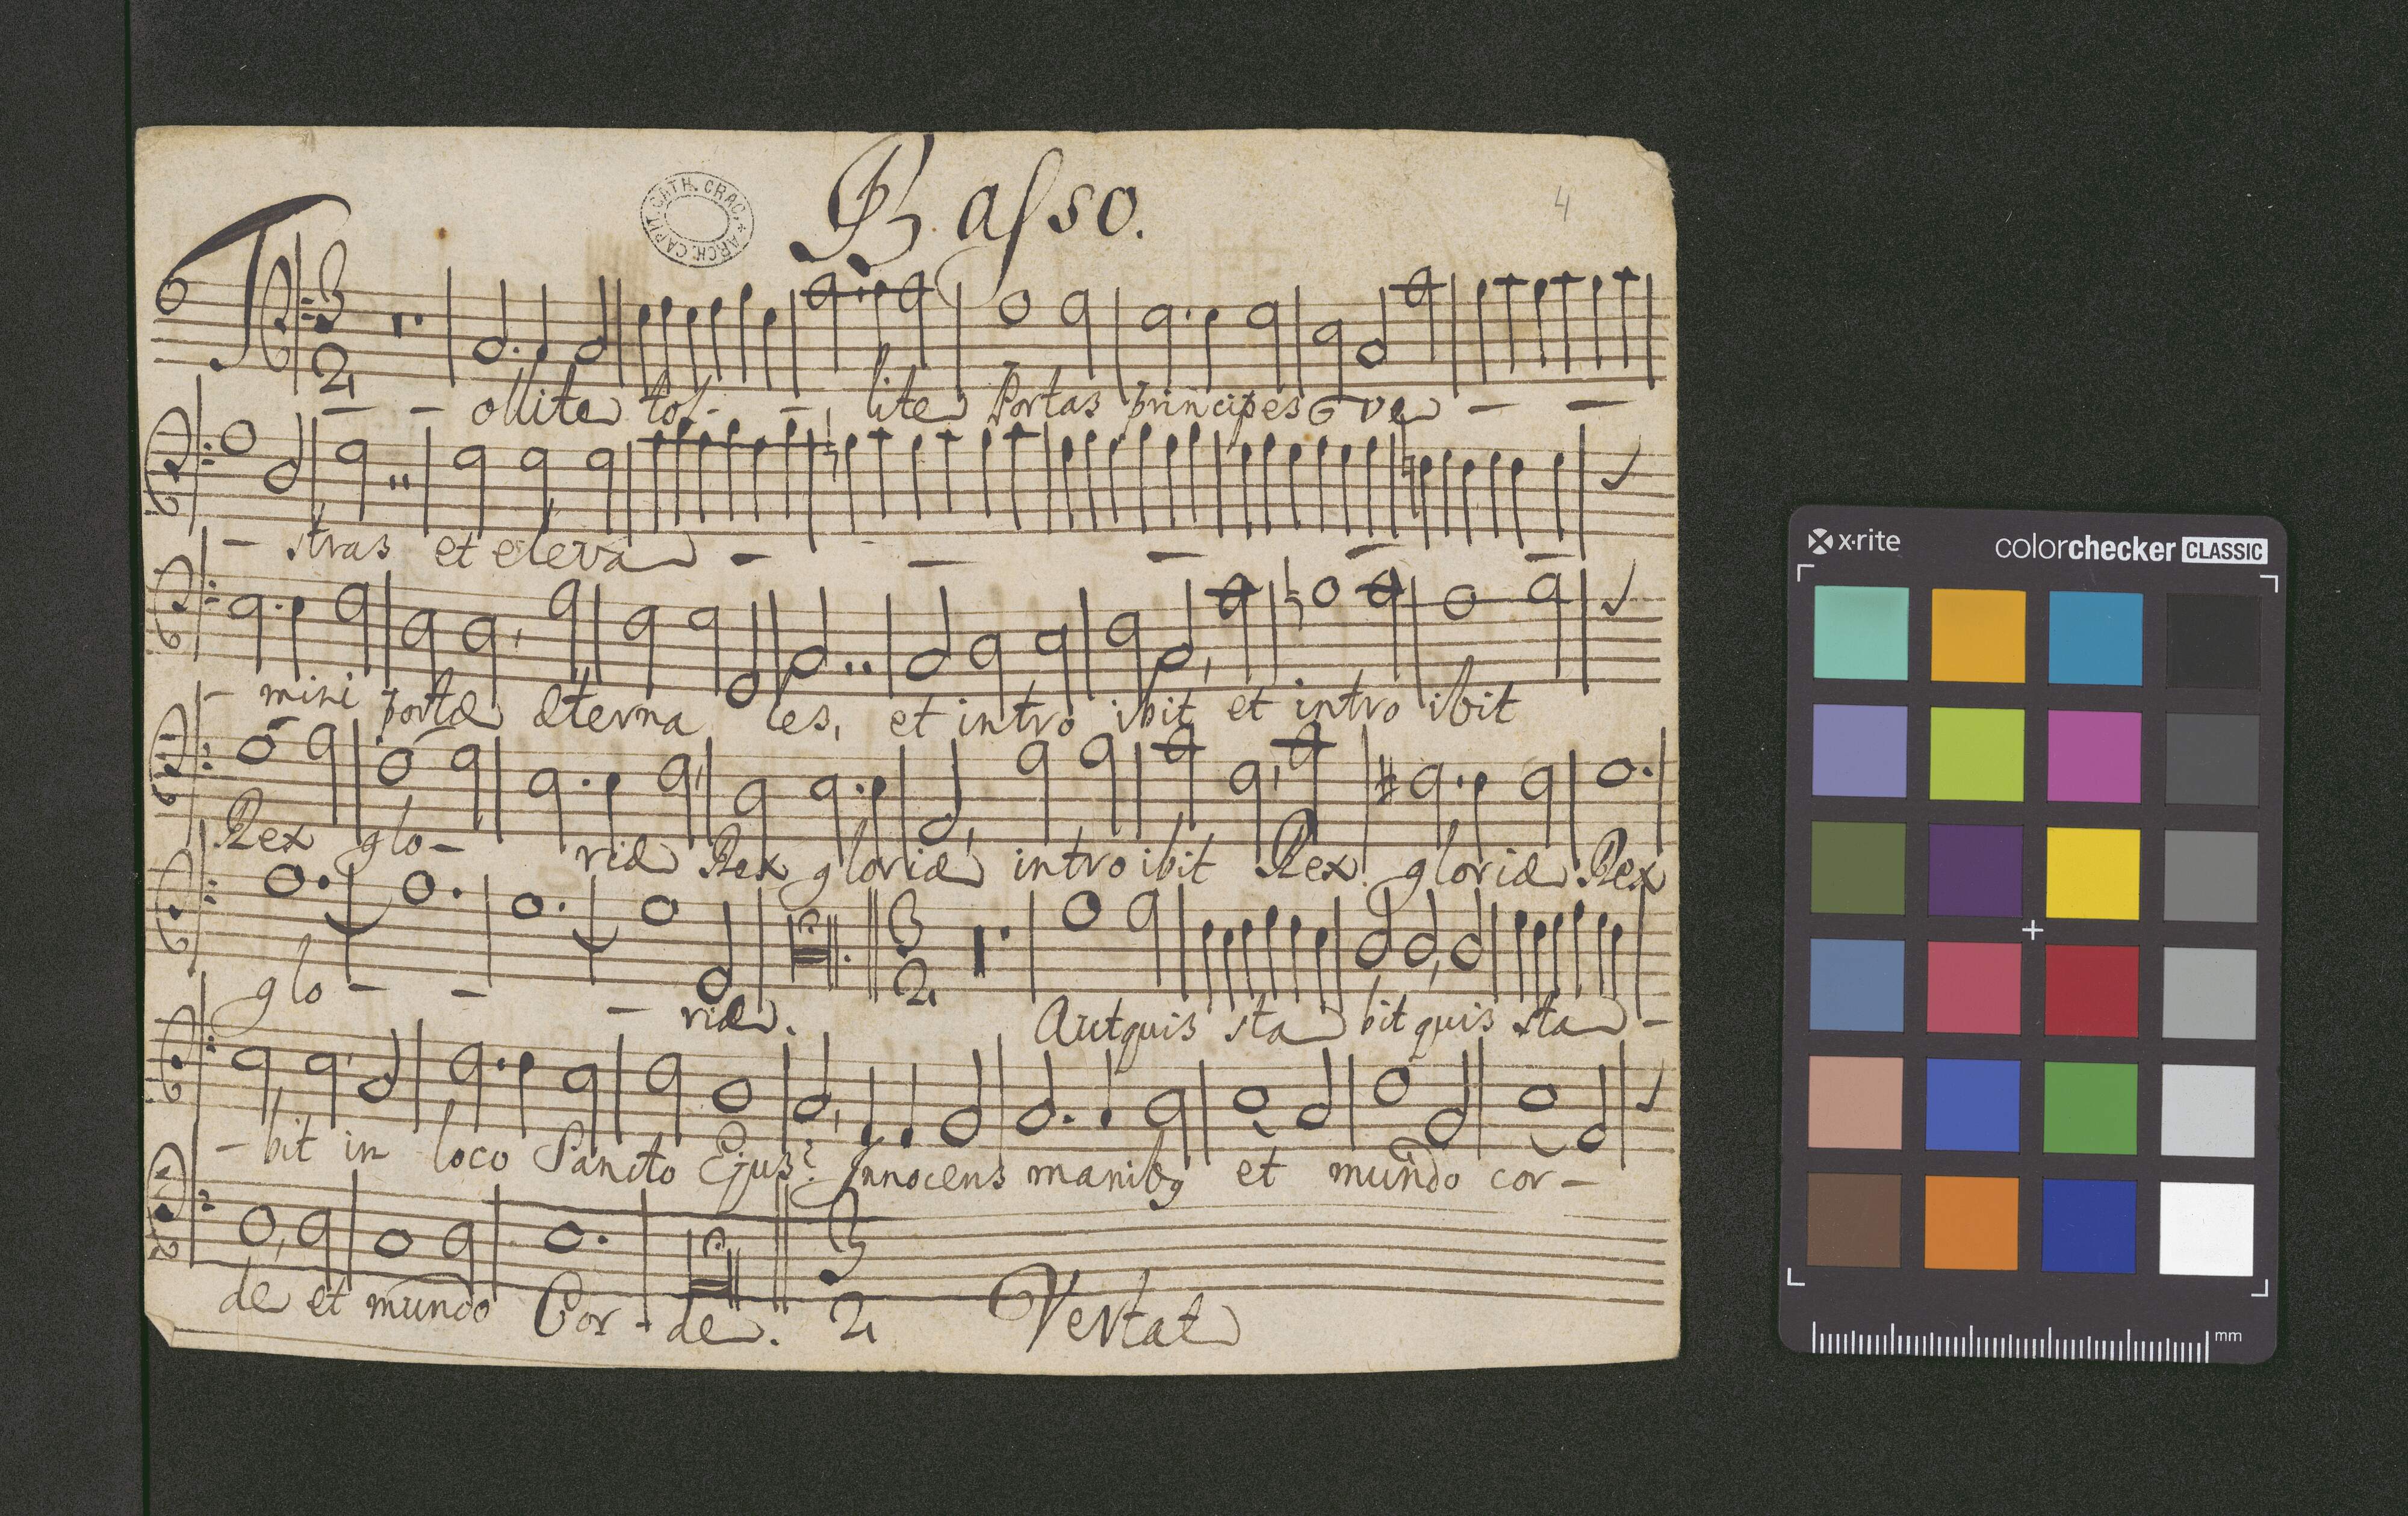 Basso.
ARCH. CAPIT. CATH. CRAC.
4
3
2
Tollite tol- - lite Portas principes ve - -
- stras et eleva - - - - -
- mini portæ æterna les, et intro ibit et intro ibit
Rex glo- riæ Rex gloriæ intro ibit Rex gloriæ Rex
3
2
glo - - - riæ. Aut quis sta bit quis sta -
- bit in loco Sancto Ejus? Innocens manibq et mundo cor -
3
2
de et mundo Cor - de. Vertat
x·rite
colorchecker CLASSIC
mm